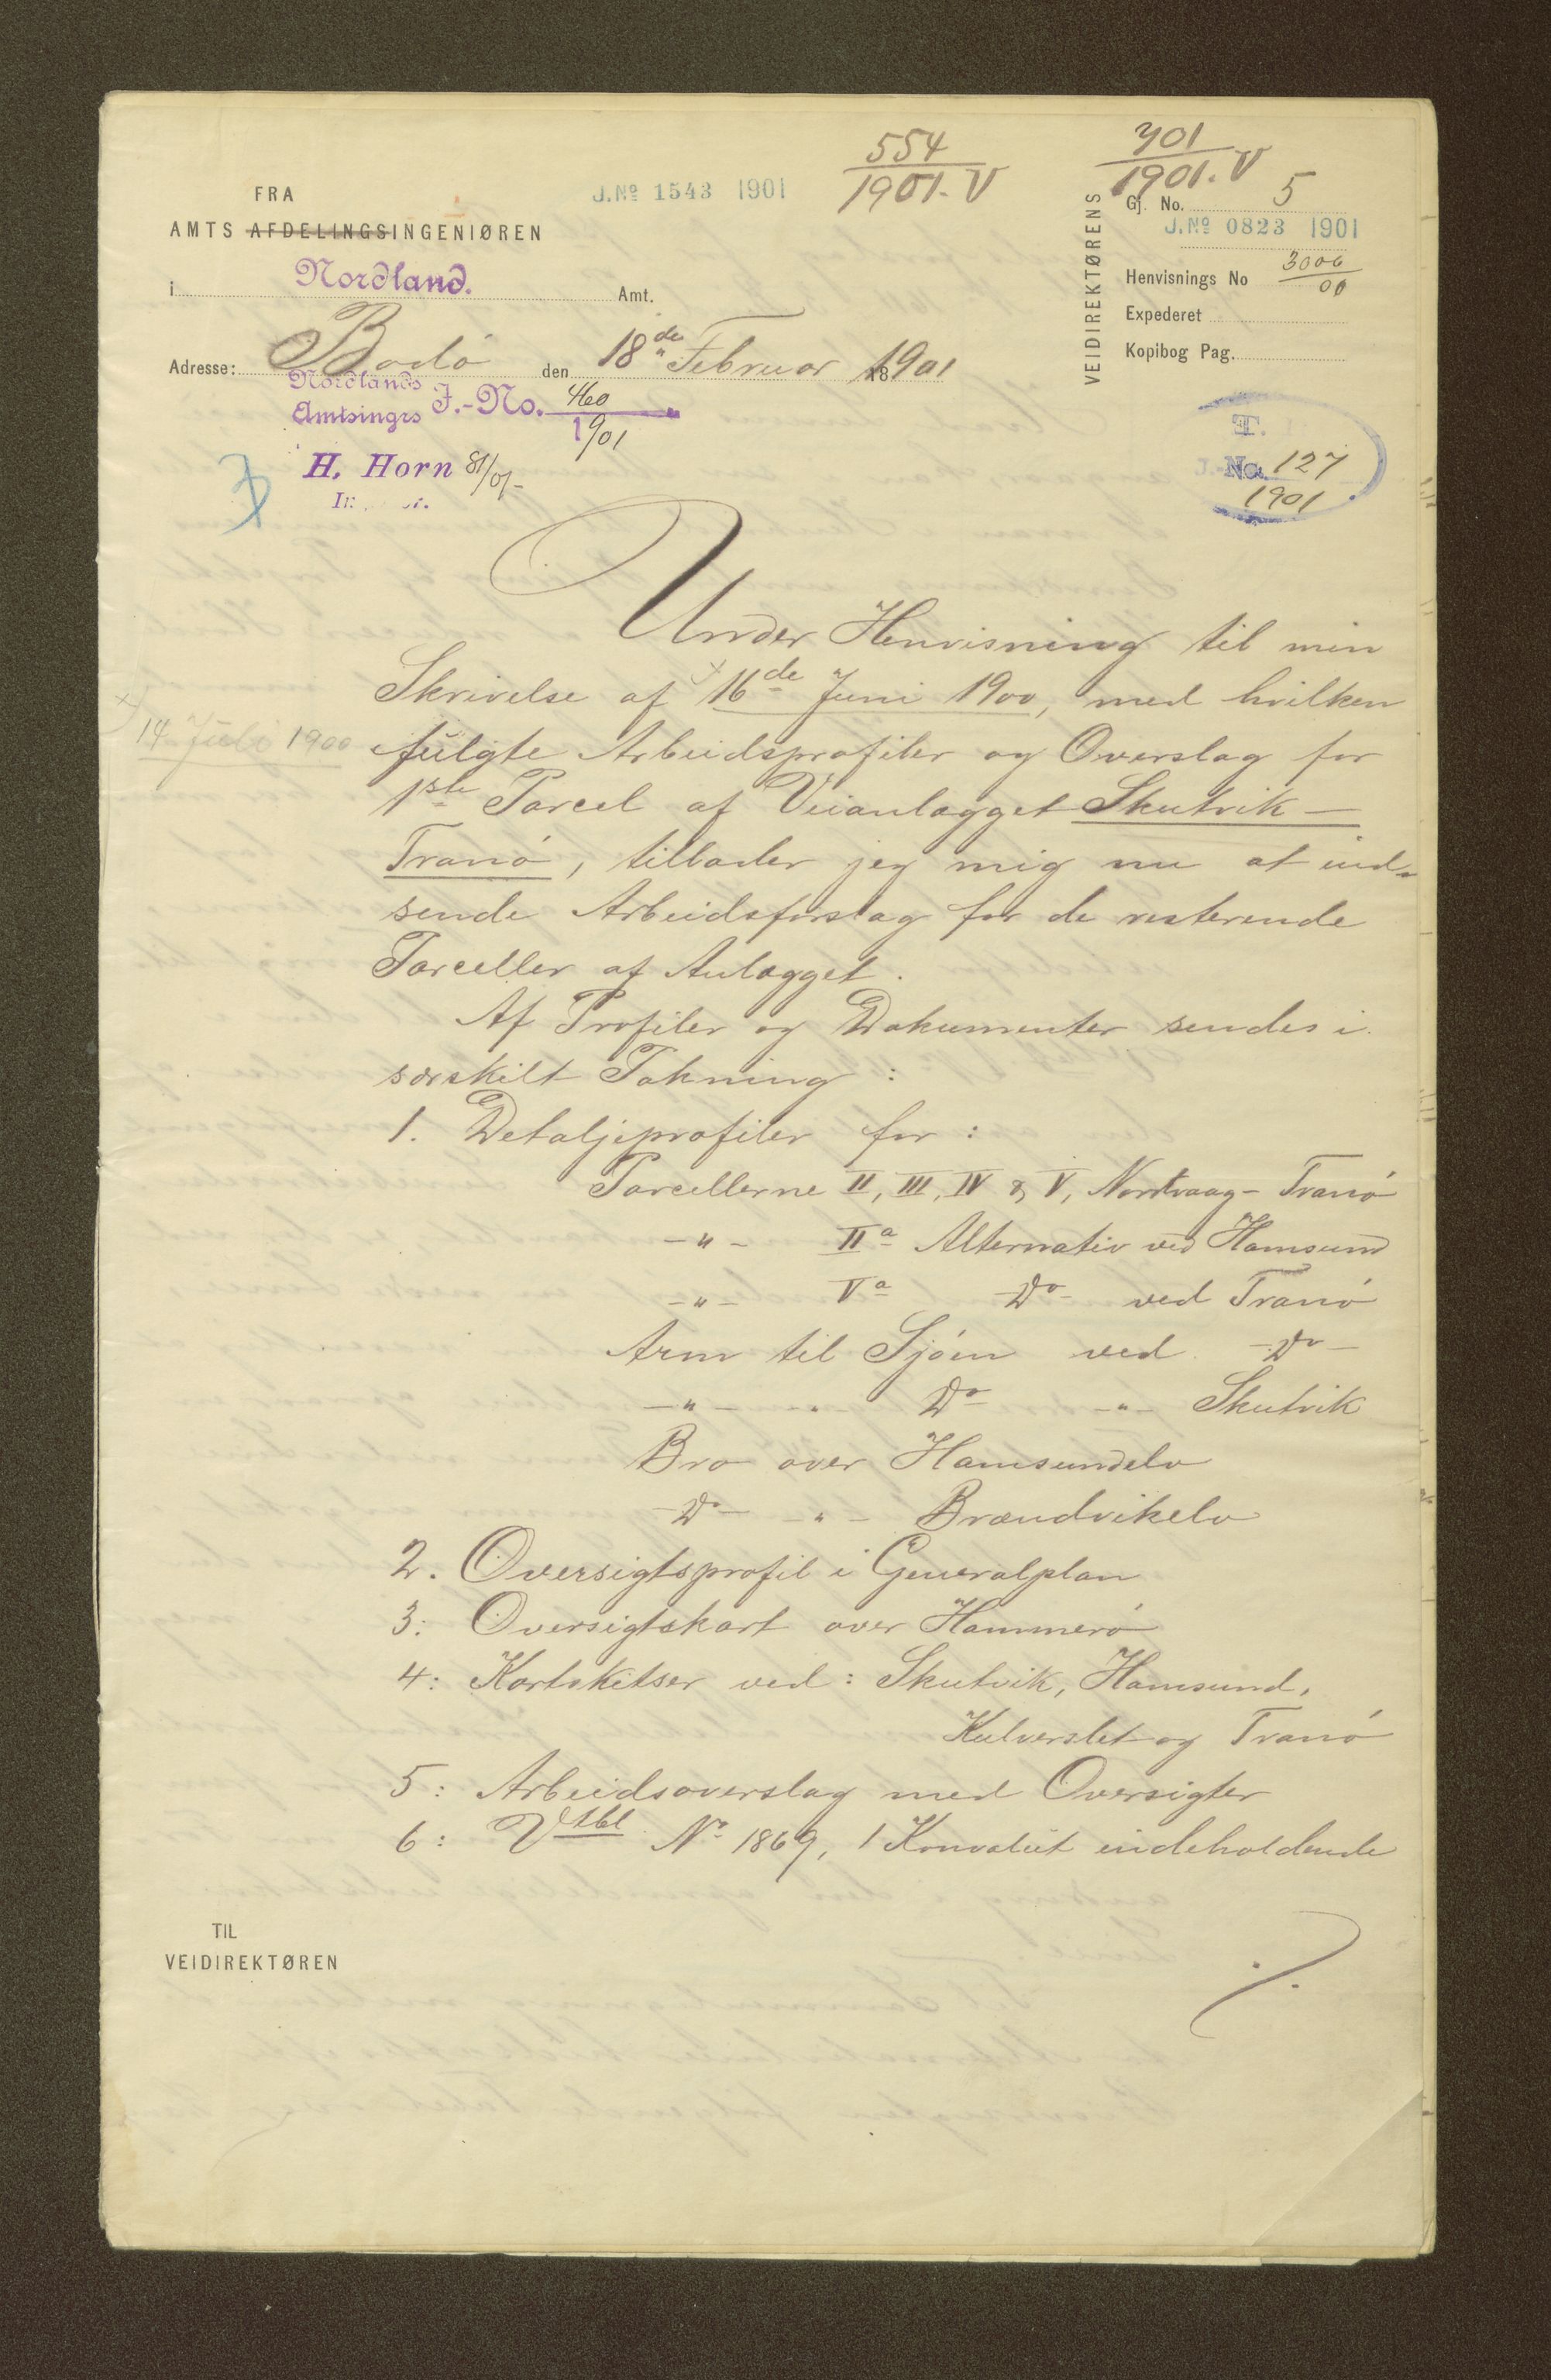 FRA
AMTS AFDELINGSINGENIØREN
i Nordland. Amt.
Adresse: Bodø den 18de Februar 1901
Nordlands
Amtsingrs J.-No. 460
1901
H. Horn 81/01
J.No 1543 1901
554
1901. V
301
1901. V
VEIDIREKTØRENS
Gj. No. 5
J.No 0823 1901
Henvisnings No 3006
00
Expederet
Kopibog Pag.
T.
J.-No. 127
1901
Under Henvisning til min
Skrivelse af 16de Juni 1900, med hvilken
14 Juli 1900
fulgte Arbeidsprofiler og Overslag for
1ste Parcel af Veianlægget Skutvik -
Tranö, tillader jeg mig nu at ind-
sende Arbeidsforslag for de resterende
Parceller af Anlægget.
Af Profiler og Dokumenter sendes i
særskilt Pakning :
1. Detaljeprofiler for :
Parcellerne II, III, IV & V, Nordvaag - Tranö
-"- IIa Alternativ ved Hamsund
-"- Va Do ved Tranö
Arm til Sjöen ved Do
-"- Do -"- Skutvik
Bro over Hamsundelv
Do -"- Brændvikelv
2. Oversigtsprofil i Generalplan
3: Oversigtskart over Hammerö
4: Kartskitser ved : Skutvik, Hamsund,
Kulverslet og Tranö
5: Arbeidsoverslag med Oversigter
6: No 1869, 1 Konvolut indeholdende
./.
TIL
VEIDIREKTØREN